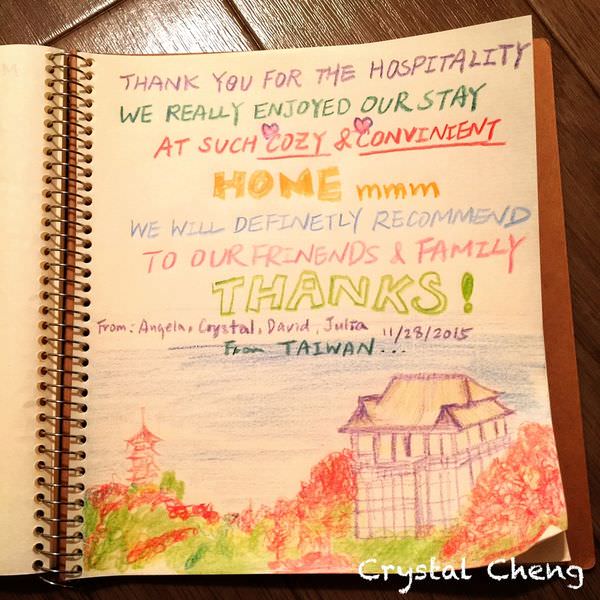 THANK YOU FOR THE HOSPITALITY
WE REALLY ENJOYED OUR STAY
AT SUCH COZY & CONVINIENT
HOME mmm
WE WILL DEFINETLY RECOMMEND
TO OUR FRINENDS & FAMILY
THANKS!
From: Angela, Crystal, David, Julia 11/28/2015
From TAIWAN...
Crystal Cheng